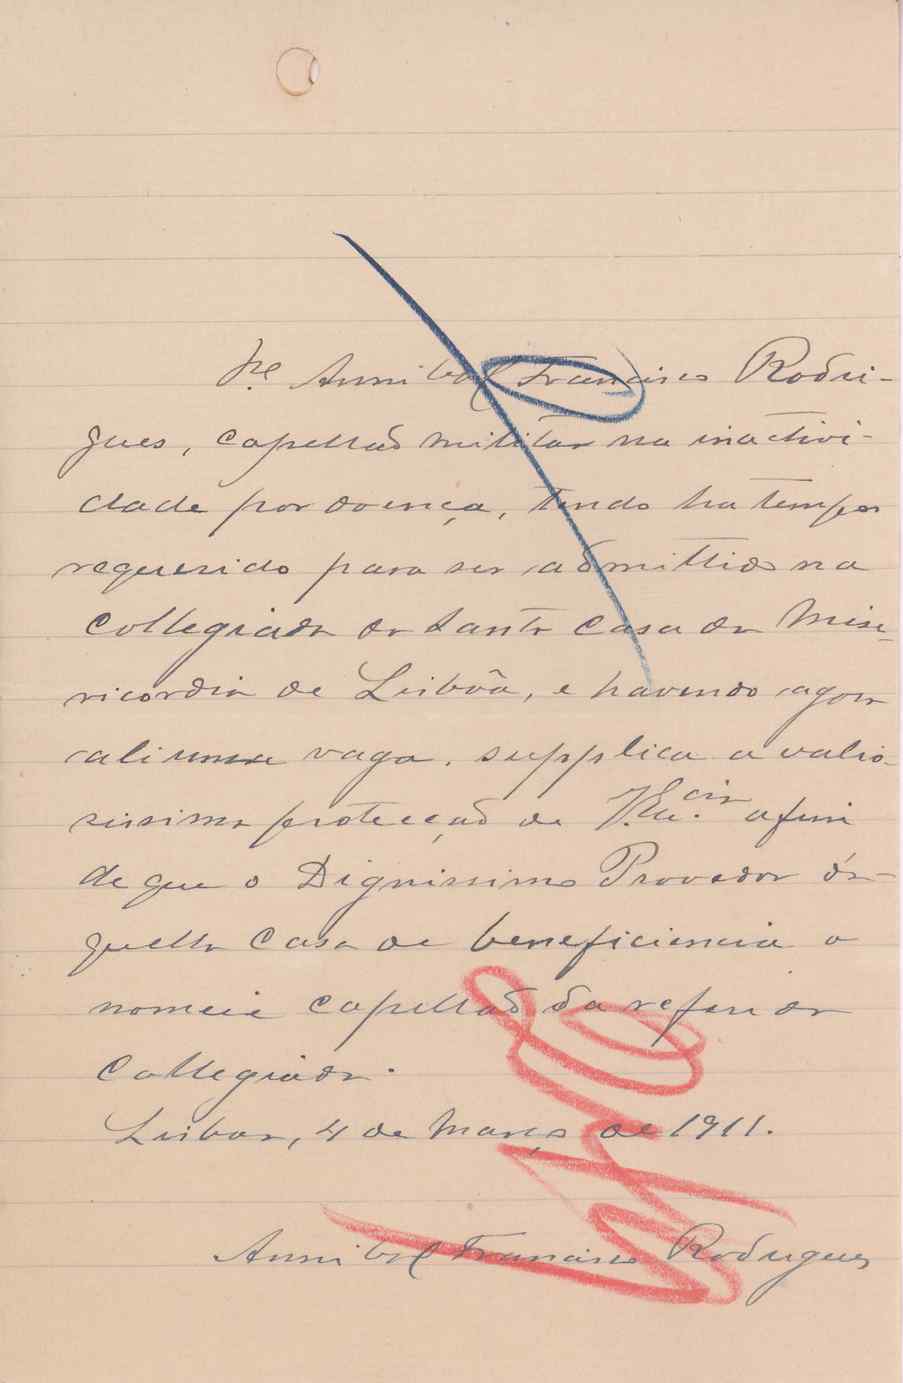 P.e Annibal Francisco Rodri-
gues, capellão militar na inactivi-
dade por doença, tendo ha tempo
requerido para ser admittido na
Collegiada da Santa Casa da Mise-
ricordia de Lisbôa, e havendo agora
ali uma vaga, supplica a valio-
sissima protecção de V. Ex.cia afim
de que o Dignissimo Provedor da-
quella Casa de beneficiencia o
nomeie capellão da referida
Collegiada.
Lisboa, 4 de Março de 1911.
Annibal Francisco Rodrigues